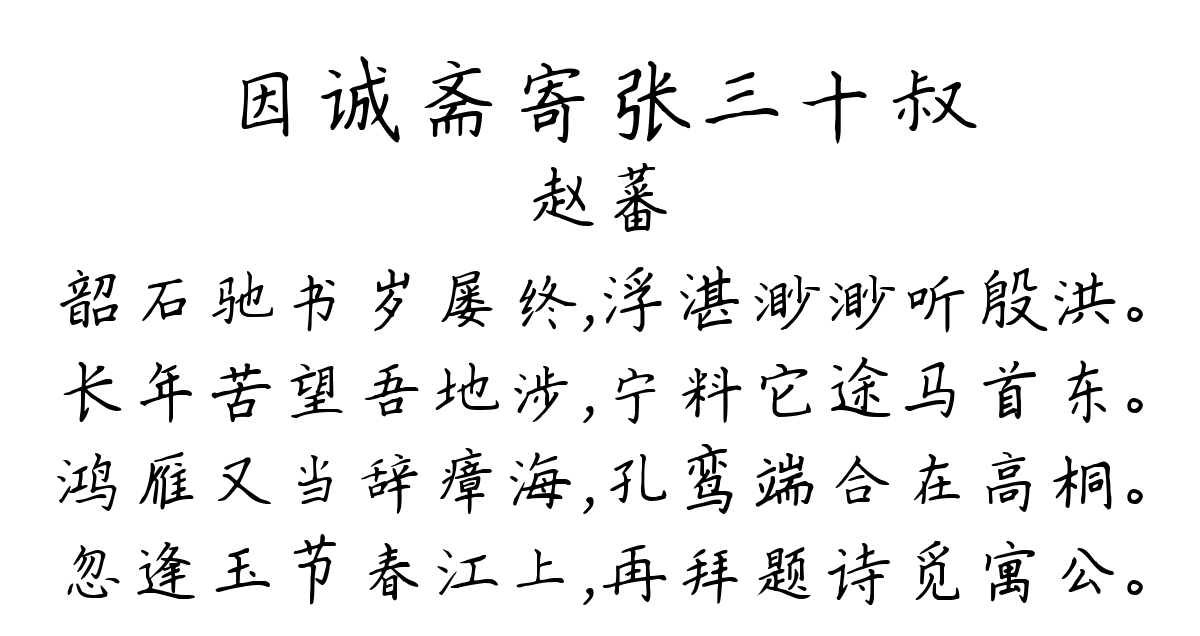 因诚斋寄张三十叔
赵蕃
韶石驰书岁屡终,浮湛渺渺听殷洪。
长年苦望吾地涉,宁料它途马首东。
鸿雁又当辞瘴海,孔鸾端合在高桐。
忽逢玉节春江上,再拜题诗觅寓公。